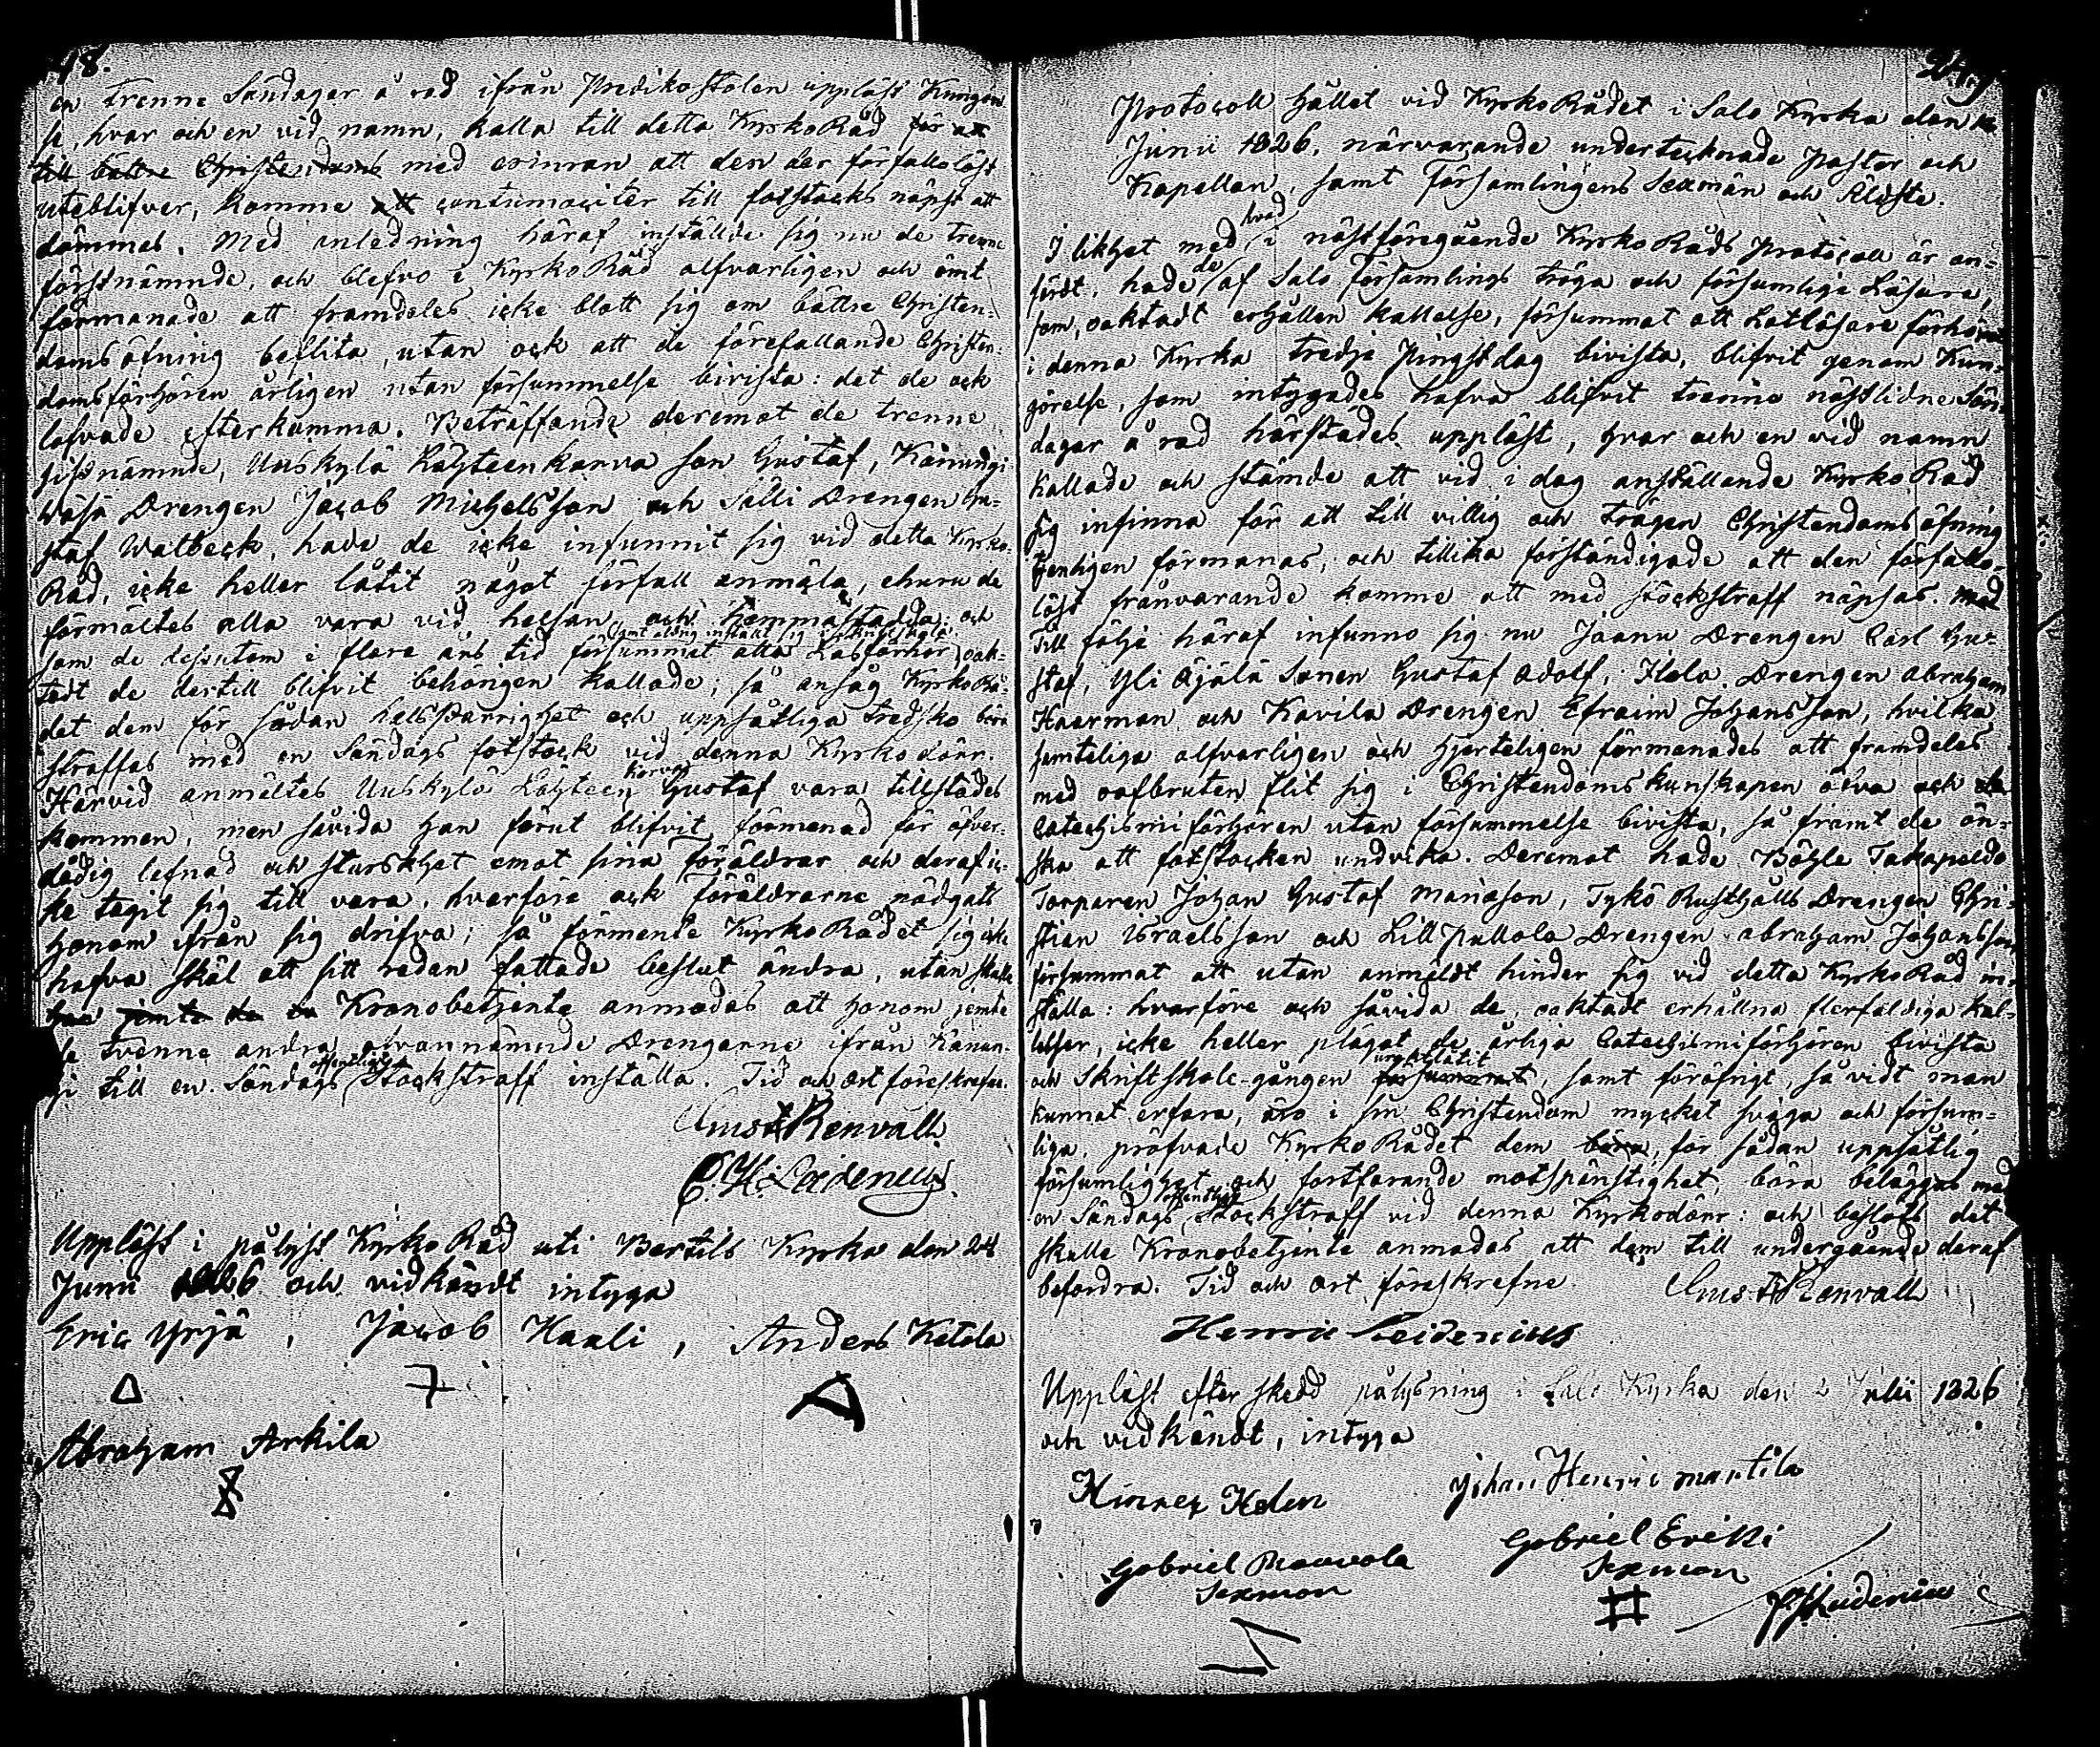 48.
en trenne Söndagar å rad ifrån Predikostolen uppläst Kungörel-
se, hvar och en vid namn, kalla till detta KyrkoRåd för att
till bättre Christendoms med erinran att den der förfallolöst
uteblifver, komme att contumaciter till fotstocks näpst att
dömmas. Med anledning häraf inställde sig nu de trenne
förstnämnde, och blefvo i KyrkoRåd alfvarligen och ömt
förmanade att framdeles icke blott sig om bättre Christen-
doms öfning beflita, utan ock att de förefallande Christen-
domsförhören årligen utan försummelse bivista: det de ock
lofvade efterkomma. Beträffande deremot de trenne
sistnämnde, Uuskylä Lähteenkorva son Gustaf, Kanungi
Wäsä Drengen Jacob Michelsson och Sälli Drengen Gu-
staf Walbeck, hade de icke infunnit sig vid detta Kyrko-
Råd, icke heller låtit något förfall anmäla, ehuru de
förmältes alla vara vid helsan och hemmastadda, och
som de dessutom i flere års tid försummat alla Läsförhör, oak-
samt aldrig instält sig i skriftskola
tadt de dertill blifvit behörigen kallade; så ansåg KyrkoRå-
det dem för sådan hallstarrighet och uppsåtliga tredsko böra
straffas med en Söndags fotstock vid denna Kyrkodörr.
Härvid anmältes Uuskylä Lähteen korva Gustaf vara tillstädes
kommen, men såvida han förut blifvit förmanad för öfver-
dådig lefnad och sturskhet emot sina föräldrar och deraf ic-
ke tagit sig till vara, hvarföre ock föräldrarne nödgats
honom ifrån sig drifva; så förmente KyrkoRådet sig icke
hafva skäl att sitt redan fattade beslut ändra, utan skulle
Kronobetjente anmodas att honom jemte
de tvenne andra ofvannämnde Drengarne ifrån Kanun-
gi till en Söndags offentligt Stockstraff inställa. Tid och ort föreskrefne.
Gust Renvall
C. H. Leidenius
Uppläst i pålyst KyrkoRåd uti Bertils Kyrka den 24
Junii 1826 och vidkändt intyga
Eric Yrjä, Jacob Kaali, Anders Ketola
Abraham Arkila
249
Protocoll hållet vid KyrkoRådet i Salo Kyrka den
Junii 1826, närvarande undertecknade Pastor och
Kapellan, samt Församlingens Sexmän och Äldste.
I likhet med hvad i nästföregående KyrkoRåds Protocoll är an-
fördt, hade de af Salo Församlings tröga och försumlige Läsare,
som, oaktadt erhållen kallelse, försummat att Latläsare förhöret
i denna Kyrka tredje Pingstdag bivista, blifvit genom Kun-
görelse, som intygades hafva blifvit trenne nästlidne Sön-
dagar å rad härstädes uppläst, hvar och en vid namn
kallade och stämde att vid i dag anställande KyrkoRåd
sig infinna för att till villig och trägen Christendoms öfning
ömligen förmanas, och tillika förständigade att den förfallo-
löst frånvarande komme att med stockstraff näpsas.
Till följe häraf infunno sig nu Jaanu Drengen Carl Gu-
staf, Yli Äjälä Sonen Gustaf Adolf, Isola Drengen Abraham
Haarman och Kavila Drengen Efraim Johansson, hvilka
samteliga alfvarligen och hjerteligen förmanades att framdeles
med oafbruten flit sig i Christendomskunskapen öfva och
Catechismiförhören utan försummelse bivista, så framt de ön-
ska att fotstocken undvika. Deremot hade Böhle Takapeldo
Torparen Johan Gustaf Mariason, Tykö Rusthålls Drengen Chri-
stian Israelsson och Lill Pullola Drengen Abraham Johansson
försummat att utan anmäldt hinder sig vid detta KyrkoRåd in-
ställa: hvarföre och såvida de, oaktadt erhållna flerfaldiga kal-
lelser, icke heller plägat de årliga Catechismiförhören bivista
och Skriftskole-gången försummat uraktlåtit, samt föröfrigt, så vidt man
kunnat erfara, äro i sin Christendom mycket svaga och försum-
liga, pröfvade KyrkoRådet dem böra, för sådan uppsåtlig
försumlighet och fortfarande motspänstighet, böra beläggas med
en Söndags offentligt Stockstraff vid denna Kyrkodörr: och beslöts det
skulle Kronobetjente anmodas att dem till undergående deraf
befordra. Tid och ort föreskrefne.
Gust Renvall
Henric Leidenius
Uppläst efter skedd pålysning i Salo Kyrka den 2 Julii 1826
och vidkändt, intyga
Hinrec Helen
Johan Henric Mantila
Gabriel
Sexman
Gabriel Erikki
Sexman
C H Leidenius